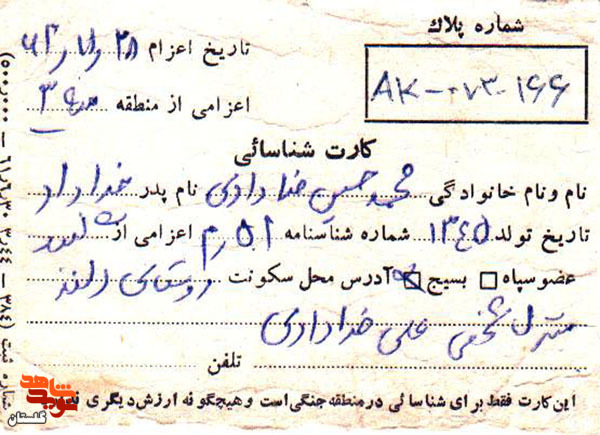 شماره پلاک
AK-۰۷۳-۱۶۶
تاریخ اعزام ۲۸ر۷ر۶۳
اعزامی از منطقه ۳
کارت شناسائی
نام و نام خانوادگی محمد حسین خدادادی نام پدر خداداد
تاریخ تولد ۱۳۴۵ شماره شناسنامه اعزامی از
عضو سپاه بسیج آدرس محل سکونت روستای
منزل شخصی علی خدادادی
تلفن
این کارت فقط برای شناسائی در منطقه جنگی است و هیچگونه ارزش دیگری
نوید شاهد
گلستان